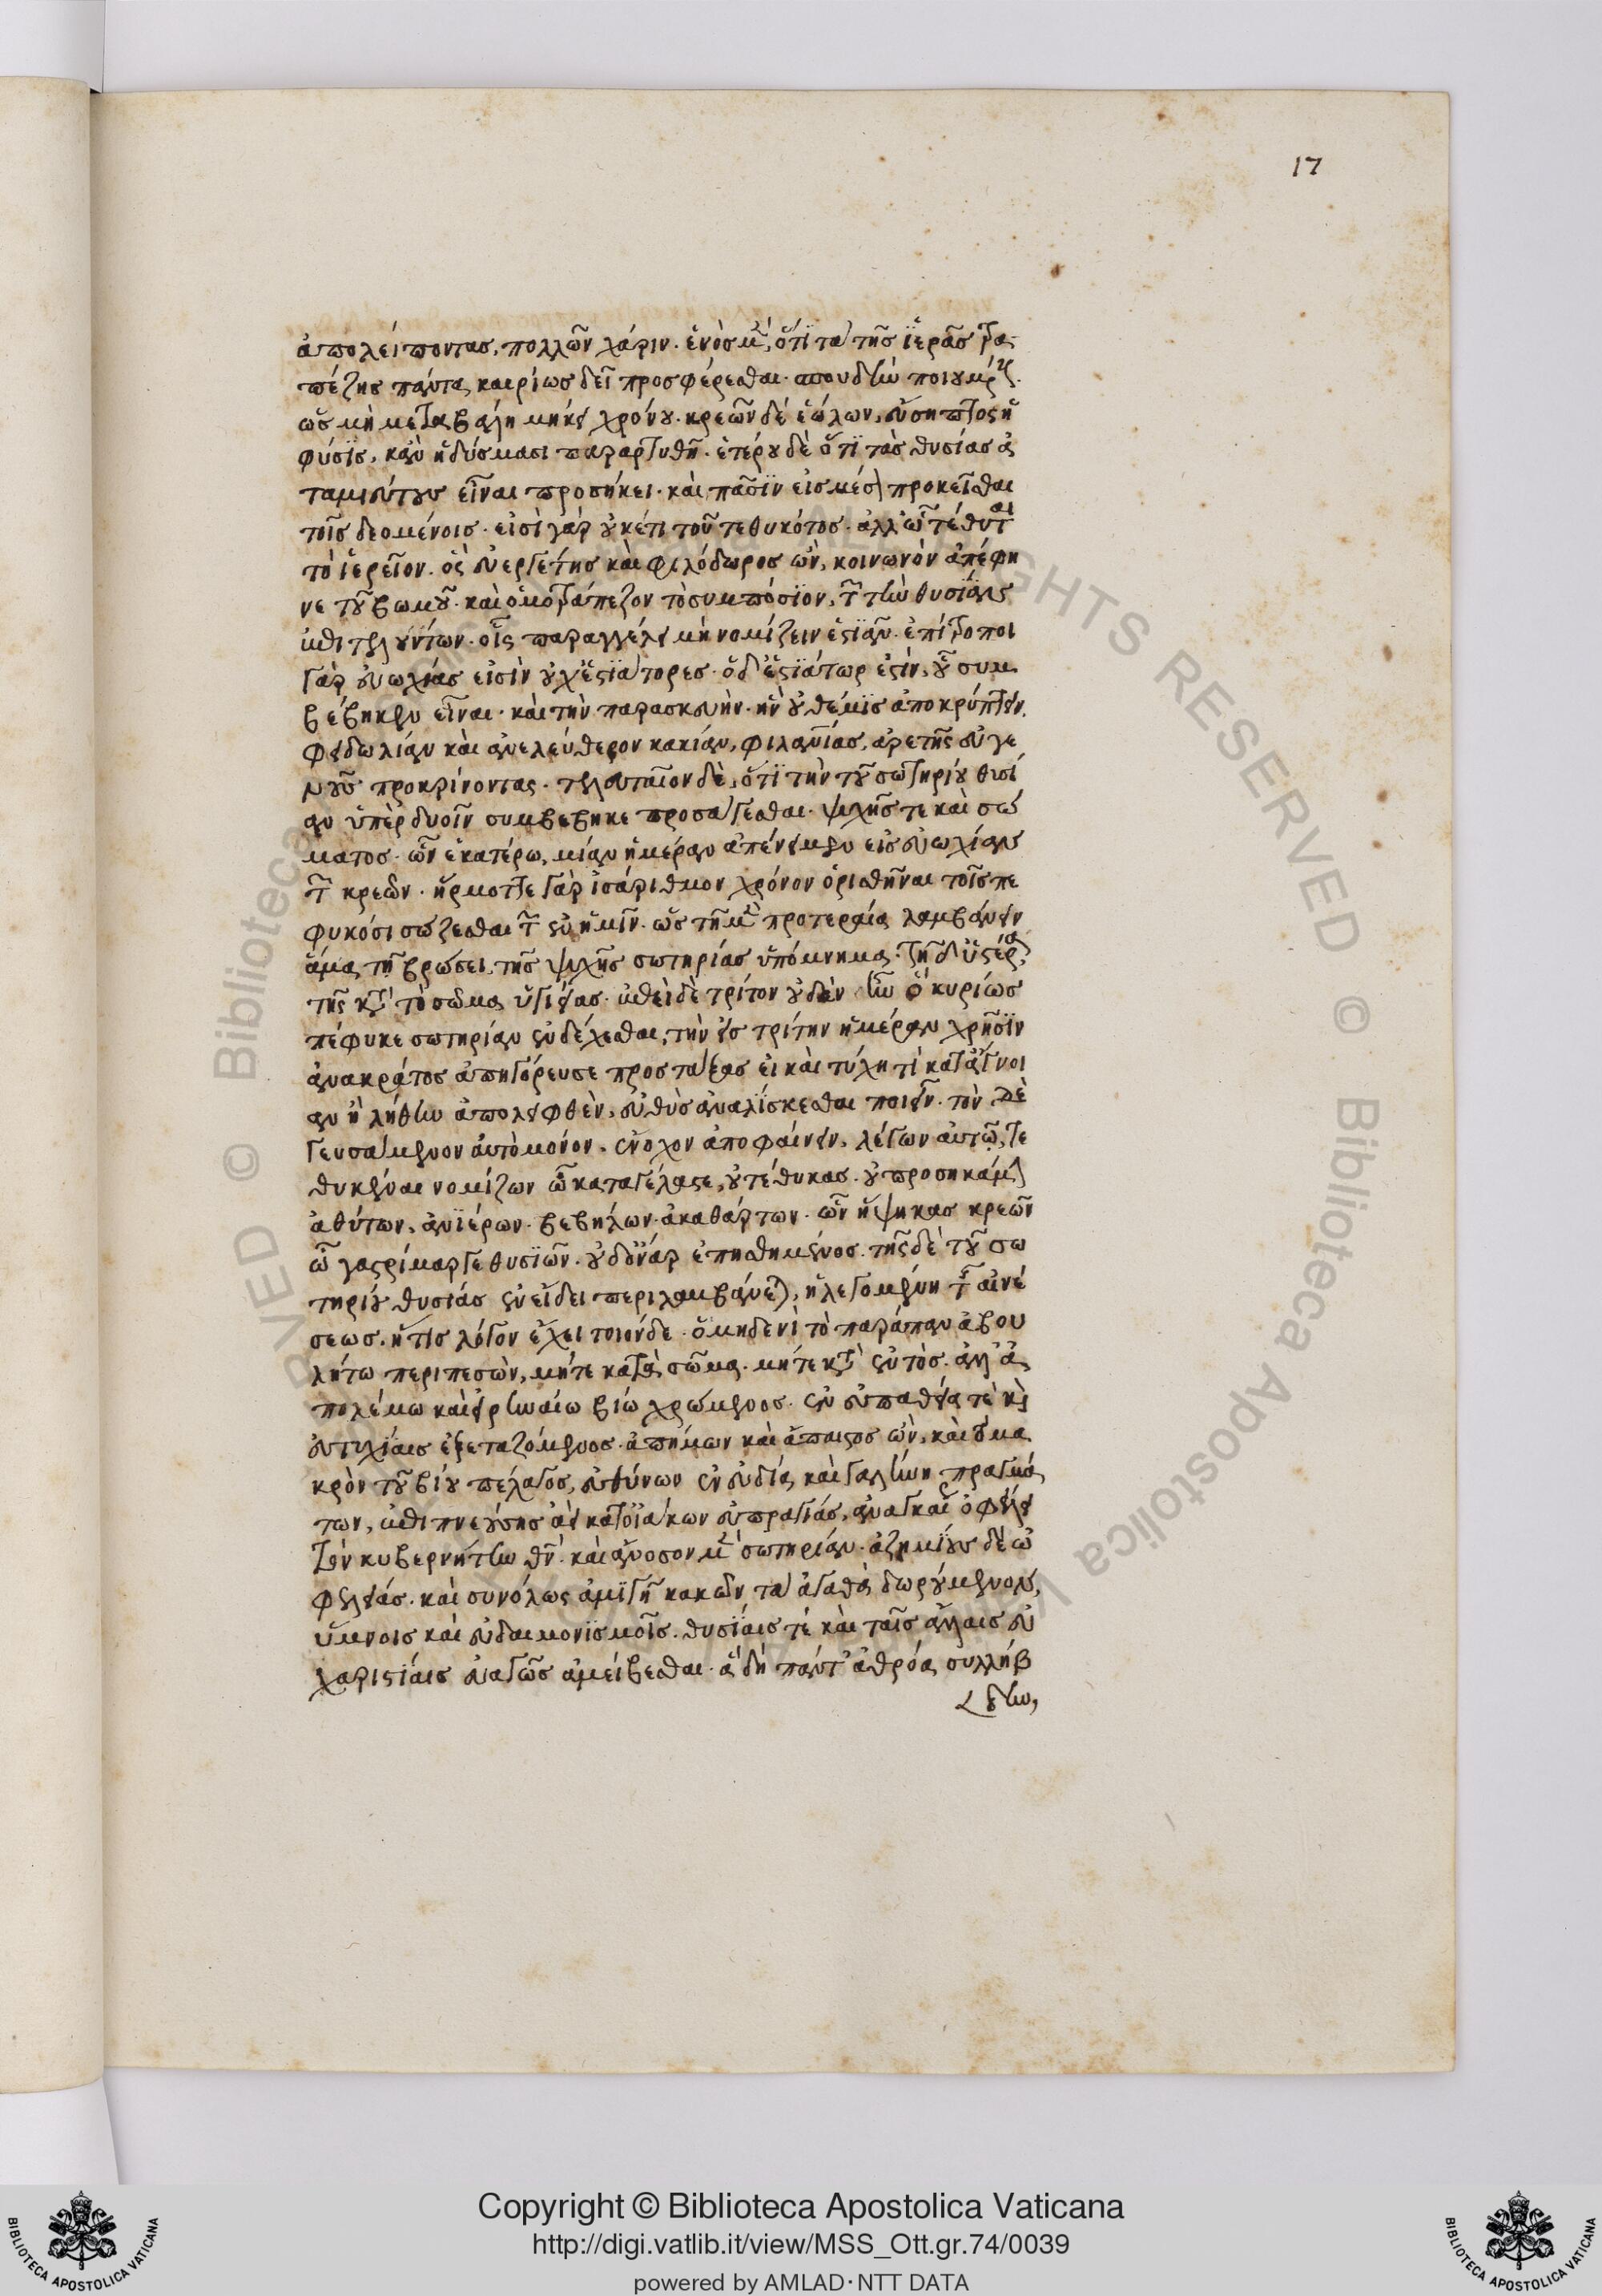 17
ἀπολείποντας, πολλῶν χάριν. ἑνὸς μὲν, ὅτι τὰ τῆς ἱερᾶς τρα
πέζης πάντα καιρίως δεῖ προσφέρεσθαι. σπουδὴν ποιουμένους
ὡς μὴ μεταβάλῃ μήκει χρόνου. κρεῶν δὲ ἑώλων, εὔσηπτος ἡ
φύσις, κἂν ἡδύσμασι παραρτυθῇ. ἑτέρου δὲ ὅτι τὰς θυσίας ἀ
ταμιεύτους εἶναι προσήκει. καὶ πᾶσιν εἰς μέσον προκεῖσθαι
τοῖς δεομένοις. εἰσὶ γὰρ οὐκέτι τοῦ τεθυκότος. ἀλλ' ᾧ τέθυται
τὸ ἱερεῖον. ὃς εὐεργέτης καὶ φιλόδωρος ὢν, κοινωνὸν ἀπέφη
νε τοῦ βωμοῦ. καὶ ὁμοτράπεζον τὸ συμπόσιον, τῶν τὴν θυσίαν
ἐπιτελούντων. οἷς παραγγέλει μὴ νομίζειν ἑστιᾶν. ἐπίτροποι
γὰρ εὐωχίας εἰσὶν οὐχ ἑστιάτορες. ὁ δ' ἑστιάτωρ ἐστὶν, οὗ συμ
βέβηκεν εἶναι. καὶ τὴν παρασκευὴν. ἣν οὐ θέμις ἀποκρύπτειν
φειδωλίαν καὶ ἀνελεύθερον κακίαν, φιλανθρωπίας, ἀρετῆς εὐγε
νοῦς προκρίνοντας. τελευταῖον δὲ, ὅτι τὴν τοῦ σωτηρίου θυσί
αν ὑπὲρ δυοῖν συμβέβηκε προσάγεσθαι. ψυχῆς τε καὶ σώ
ματος. ὧν ἑκατέρω, μίαν ἡμέραν ἀπένειμεν εἰς εὐωχίαν
τῶν κρεῶν. ἥρμοττε γὰρ ἰσάριθμον χρόνον ὁρισθῆναι τοῖς πε
φυκόσι σώζεσθαι τῶν ἐν ἡμῖν. ὡς τῇ μὲν προτεραία λαμβάνειν
ἅμα τῇ βρώσει, τῆς ψυχῆς σωτηρίας ὑπόμνημα. τῇ δ' ὑστεραία
τῆς κατὰ τὸ σῶμα ὑγιείας. ἐπεὶ δὲ τρίτον οὐδὲν ἦν ὃ κυρίως
πέφυκε σωτηρίαν ἐνδέχεσθαι, τὴν εἰς τρίτην ἡμέραν χρῆσιν
ἀνακράτος ἀπηγόρευσε προστάξας εἰ καὶ τύχῃ τὶ κατ' ἄγνοι
αν ἢ λήθην ἀπολειφθὲν, εὐθὺς ἀναλίσκεσθαι ποιεῖν. τὸν δὲ
γευσάμενον αὐτὸ μόνον, ἔνοχον ἀποφαίνειν, λέγων αὐτῷ, τε
θυκέναι νομίζων ὦ καταγέλαστε, οὐ τέθυκας. οὐ προσηκάμην
ἀθύτων, ἀνιέρων. βεβήλων. ἀκαθάρτων. ὧν ἥψηκας κρεῶν
ὦ γαστρίμαργε θυσιῶν. οὐδ' ὄναρ ἐπησθημένος. τῆς δὲ τοῦ σω
τηρίου θυσίας ἐν εἴδει περιλαμβάνεται, ἡ λεγομένη τῆς αἰνέ
σεως. ἥτις λόγον ἔχει τοιόνδε. ὁ μηδενὶ τὸ παράπαν ἀβου
λήτω περιπεσὼν, μήτε κατὰ σῶμα. μήτε κατὰ ἐντὸς. ἀλλ' ἀ
πολέμω καὶ εἰρηναίω βίω χρώμενος. ἐν εὐπαθείᾳ τὲ καὶ
εὐτυχίαις ἐξεταζόμενος. ἀπήμων καὶ ἄπαιστος ὢν, καὶ τὸ μα
κρὸν τοῦ βίου πέλαγος, εὐθύνων ἐν εὐδίᾳ καὶ γαλήνῃ πραγμά
των, ἐπιπνεούσης ἀεὶ κατ' οἰάκων εὐπραγίας, ἀναγκαίως ὀφείλει
τὸν κυβερνήτην θεὸν. καὶ ἄνοσον μὲν σωτηρίαν. ἀζημίους δὲ ὠ
φελείας. καὶ συνόλως ἀμιγῆ κακῶν τὰ ἀγαθὰ δωρούμενον,
ὕμνοις καὶ εὐδαιμονισμοῖς. θυσίαις τὲ καὶ ταῖς ἄλλαις εὐ
χαριστίαις εὐαγῶς ἀμείβεσθαι. ἃ δὴ πάντ' ἀθρόα συλλήβ
δην,
Copyright © Biblioteca Apostolica Vaticana
http://digi.vatlib.it/view/MSS_Ott.gr.74/0039
powered by AMLAD·NTT DATA